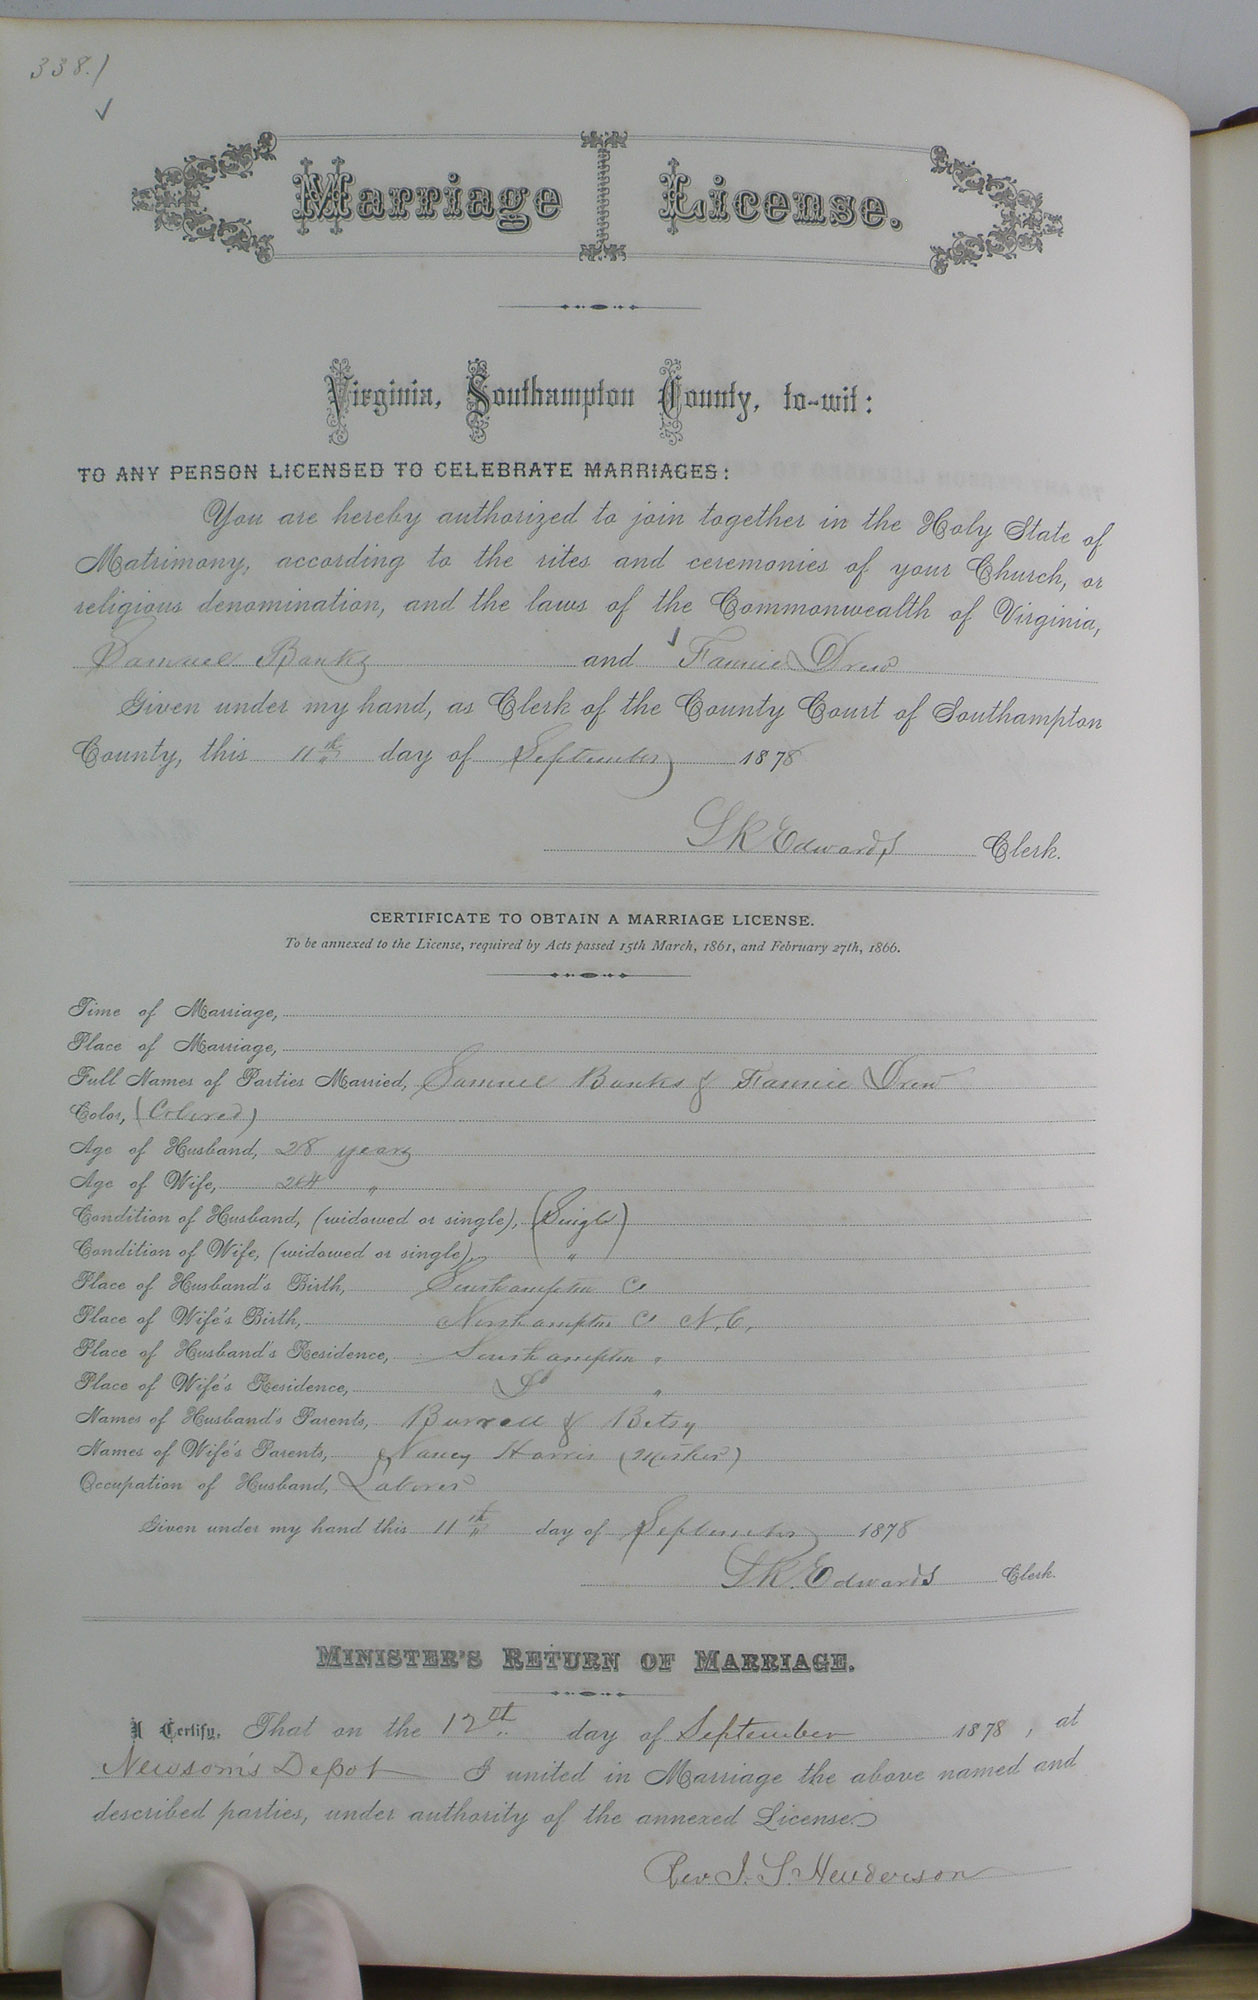 338.)
Marriage License.
Virginia, Southampton County, to-wit:
TO ANY PERSON LICENSED TO CELEBRATE MARRIAGES:
You are hereby authorized to join together in the Holy State of
Matrimony, according to the rites and ceremonies of your Church, or
religious denomination, and the laws of the Commonwealth of Virginia,
Samuel Banks and Fannie Drew
Given under my hand, as Clerk of the County Court of Southampton
County, this 11th day of September 1878
L R Edwards Clerk.
CERTIFICATE TO OBTAIN A MARRIAGE LICENSE.
To be annexed to the License, required by Acts passed 15th March, 1861, and February 27th, 1866.
Time of Marriage,
Place of Marriage,
Full Names of Parties Married, Samuel Banks & Fannie Drew
Color, (Colored)
Age of Husband, 28 years
Age of Wife, "
Condition of Husband, (widowed or single), (Single)
Condition of Wife, (widowed or single), "
Place of Husband's Birth, Southampton Co
Place of Wife's Birth, Northampton Co N.C.
Place of Husband's Residence, Southampton "
Place of Wife's Residence, "
Names of Husband's Parents, Burrell & Betsy
Names of Wife's Parents, Nancy Harris (Mother)
Occupation of Husband, Laborer
Given under my hand this 11th day of September 1878
L R. Edwards Clerk
MINISTER'S RETURN OF MARRIAGE.
I Certify, That on the 12th day of September 1878, at
Newsom's Depot I united in Marriage the above named and
described parties, under authority of the annexed License.
Rev. J. S. Henderson